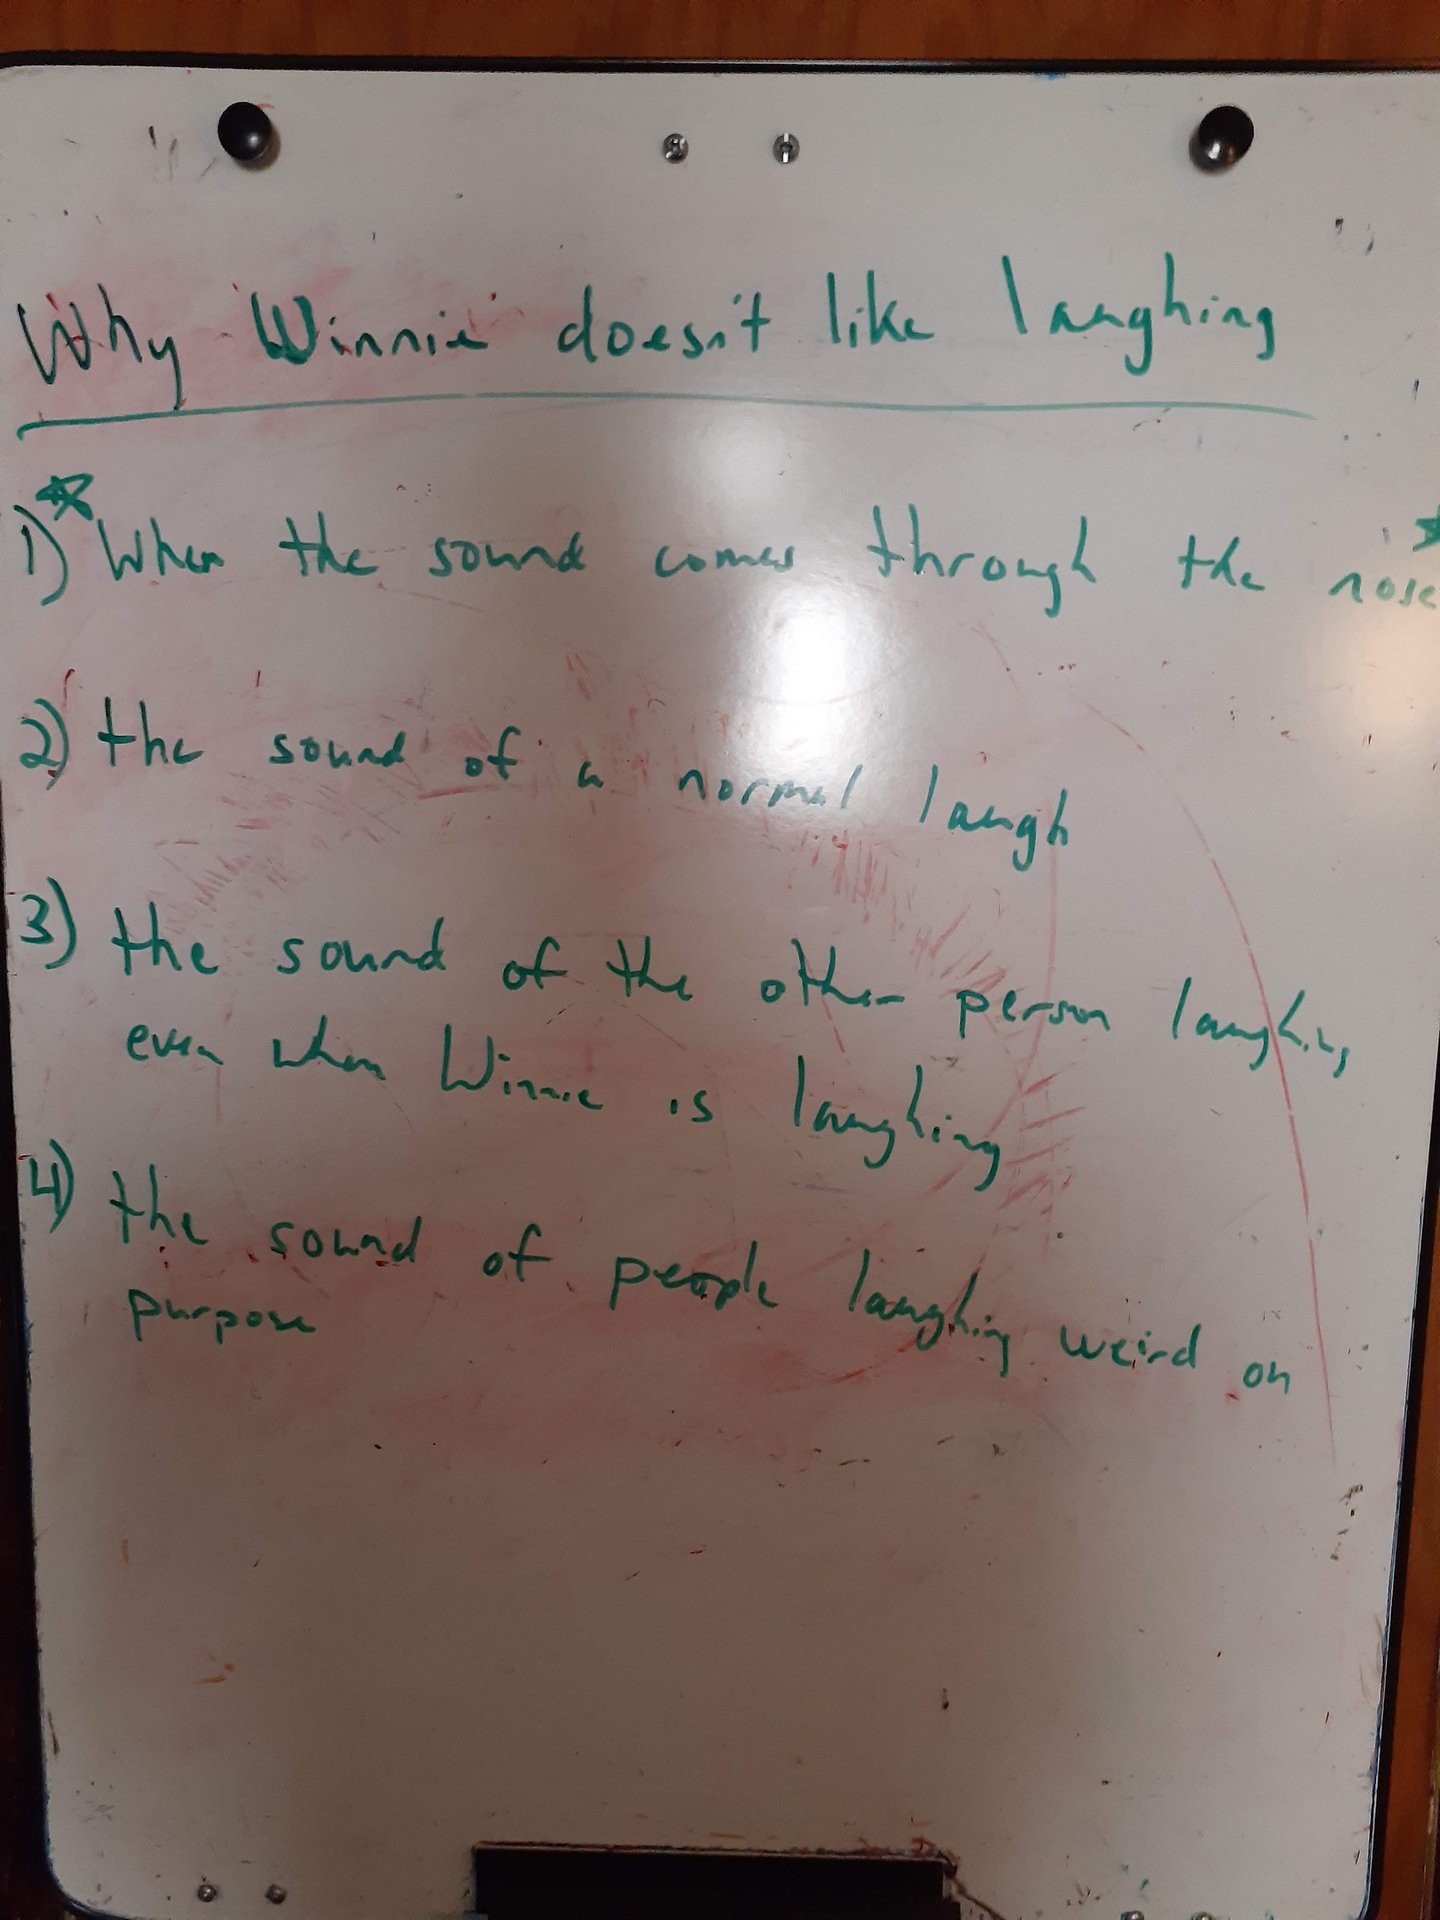 Why Winnie doesn't like laughing
1) When the sound comes through the nose
2) the sound of a normal laugh
3) the sound of the other person laughing
even when Winnie is laughing
4) the sound of people laughing weird on
purpose